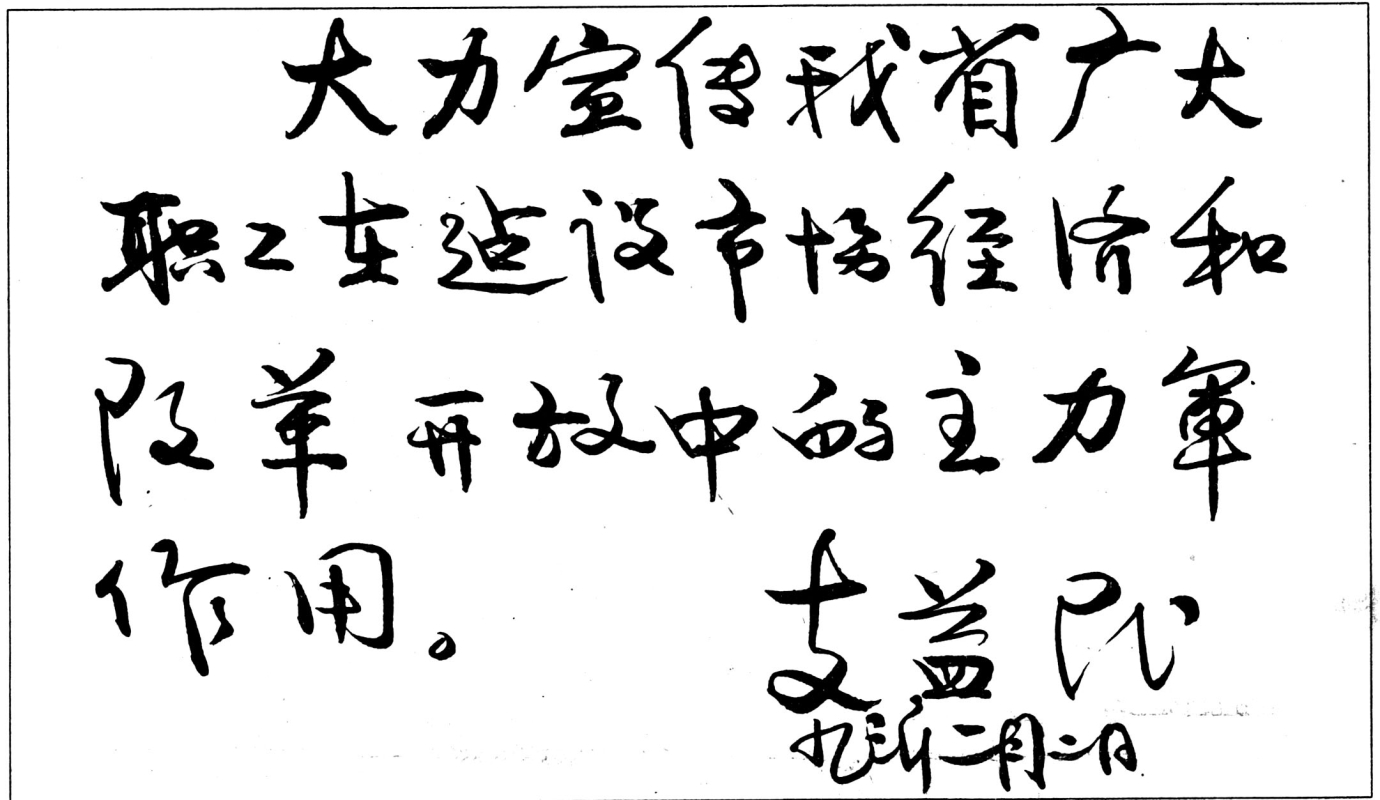 大力宣传我省广大
职工在建设市场经济和
改革开放中的主力军
作用。
支益民
九三年二月二日